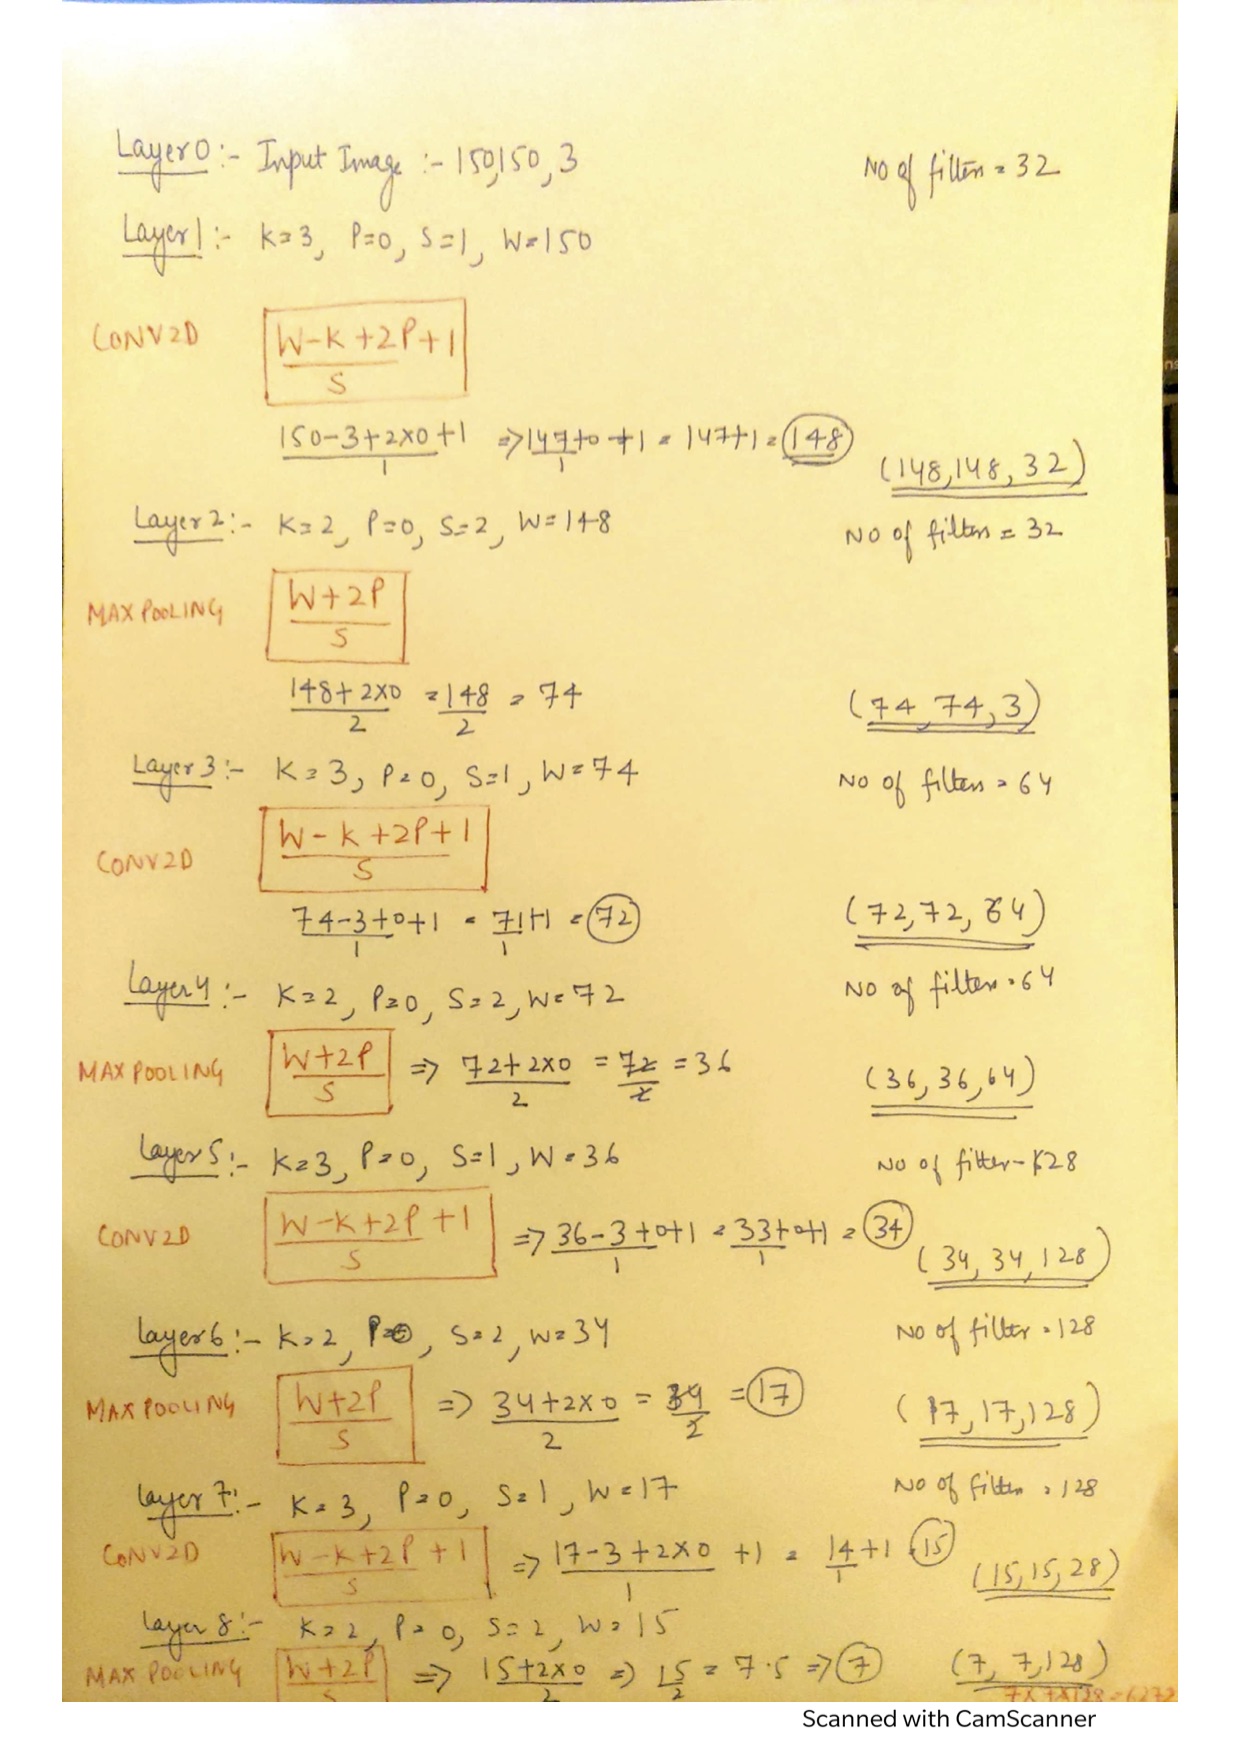 Layer 0 :- Input Image :- 150,150,3 No of filters = 32
Layer 1 :- K=3, P=0, S=1, W=150
CONV2D W-K+2P+1
S
150-3+2x0+1 => 147+0+1 = 147+1 = 148
1 1
(148,148,32)
Layer 2 :- K=2, P=0, S=2, W=148 No of filters = 32
MAX POOLING W+2P
S
148+2x0 = 148 = 74 (74,74,3)
2 2
Layer 3 :- K=3, P=0, S=1, W=74 No of filters = 64
CONV2D W-K+2P+1
S
74-3+0+1 = 71+1 = 72 (72,72,64)
1 1
Layer 4 :- K=2, P=0, S=2, W=72 No of filters = 64
MAX POOLING W+2P => 72+2x0 = 72 = 36 (36,36,64)
S 2 2
Layer 5 :- K=3, P=0, S=1, W=36 No of filter - 128
CONV2D W-K+2P+1 => 36-3+0+1 = 33+0+1 = 34
S 1 1
(34,34,128)
Layer 6 :- K=2, P=0, S=2, W=34 No of filter = 128
MAX POOLING W+2P => 34+2x0 = 34 = 17 (17,17,128)
S 2 2
Layer 7 :- K=3, P=0, S=1, W=17 No of filters = 128
CONV2D W-K+2P+1 => 17-3+2x0 +1 = 14+1 = 15
S 1 1
(15,15,28)
Layer 8 :- K=2, P=0, S=2, W=15
MAX POOLING W+2P => 15+2x0 => 15 = 7.5 => 7 (7,7,128)
S 2 2
7x7x128=6272
Scanned with CamScanner